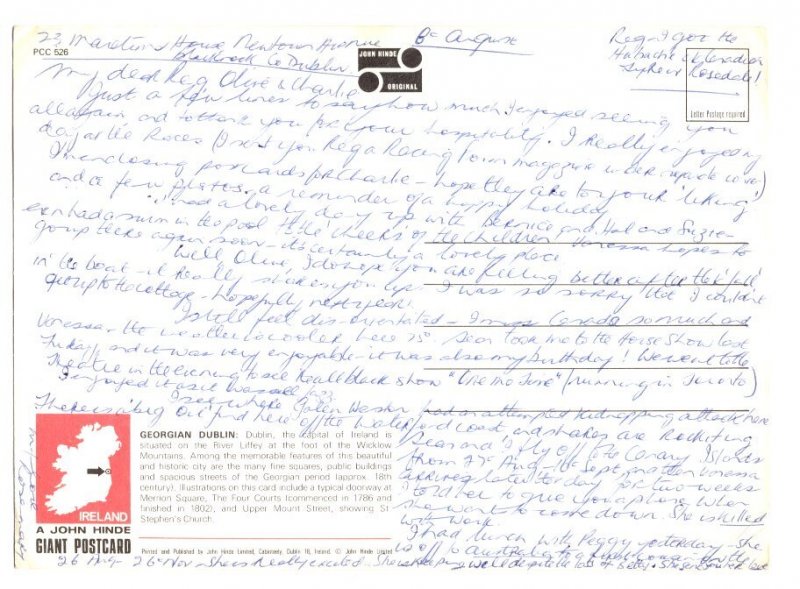 PCC 526
23, House Newtown Avenue
Blackrock Co Dublin.
8th August
JOHN HINDE
ORIGINAL
Reg I got the
Letter Postage required
My dear Reg Olive & Charlie
Just a few lines to say how much I enjoyed seeing you
all again and to thank you for your hospitality. I really enjoyed my
day at the Races (I sent you Reg a Racing magazine under separate cover)
I'm enclosing postcards for Charlie - hope they are to your 'liking'
and a few photos, a reminder of a happy holiday
I had a lovely day up with Bernice and Hal and Suzie -
even had a swim in the pool at the of the children. Vanessa hopes to
group there again soon - its certainly a lovely place.
Well Olive, I do hope you are feeling better after the 'fall'
in the boat - it really shakes you up. I was so sorry that I couldn't
get up to the cottage - hopefully next year!
I still feel dis-orientated - I miss Canada so much and
Vanessa - the weather is cooler here 75°. Sean took me to the Horse Show last
Friday and it was very enjoyable - it was also my birthday! We went to the
Theatre in the evening to see black show "One Mo Time" (running in Toronto)
I enjoyed it as it was all jazz
I see where Galen Weston had an attempted kidnapping attack here
There is a big Oil find here off the Waterford coast and shares are rocketing
Sean and I fly off to Canary Islands
from 27th Aug - 10th Sept, Vanessa
arriving later that day for two weeks
I told her to give you a phone when
she want to come down. She is killed
with work.
I had lunch with Peggy yesterday - she
is off to Australia
26 Aug - 26th Nov - she is really excited. She is keeping well despite the loss of Betty.
GEORGIAN DUBLIN: Dublin, the capital of Ireland is
situated on the River Liffey at the foot of the Wicklow
Mountains. Among the memorable features of this beautiful
and historic city are the many fine squares, public buildings
and spacious streets of the Georgian period (approx. 18th
century). Illustrations on this card include a typical doorway at
Merrion Square, The Four Courts (commenced in 1786 and
finished in 1802), and Upper Mount Street, showing St
Stephen's Church.
IRELAND
A JOHN HINDE
GIANT POSTCARD
Printed and Published by John Hinde Limited, Cabinteely, Dublin 18, Ireland. © John Hinde Limited
Rosemary